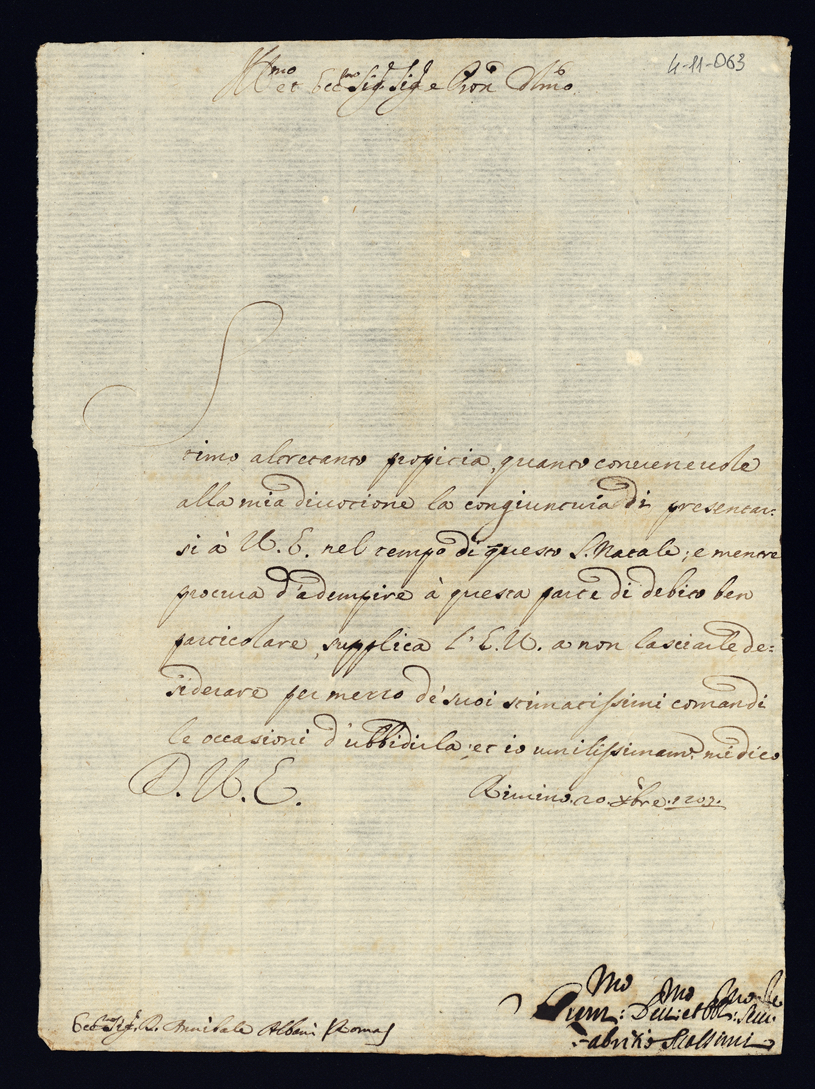 4-11-063
Ill.mo et Ecc.mo Sig.r Sig.r e Pron Col.mo
Stimo altretanto propitia, quanto conueneuole
alla mia diuotione la congiuntura di presentar:
si à V. E. nel tempo di questo S. Natale; e mentre
procura d'adempire à questa parte di debito ben
particolare, supplica l'E. V. a non lasciarle de:
siderare per mezzo de' suoi stimatissimi comandi
le occasioni d'ubbidirla; et io umilissimam.te mi dico
D. V. E.
Rimino 20 Xbre 1707.
Ecc.mo Sig.r D. Annibale Albani Roma
Um.mo Deu.mo et Obl.mo Seru.re
Fabrizio